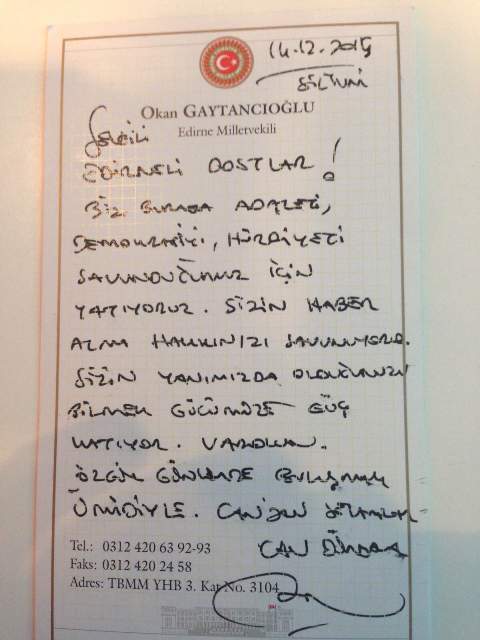 14.12.2015
SİLİVRİ
Okan GAYTANCIOĞLU
Edirne Milletvekili
SEVGİLİ
EDİRNELİ DOSTLAR!
BİZ BURADA ADALETİ,
DEMOKRASİYİ, HÜRRİYETİ
SAVUNDUĞUMUZ İÇİN
YATIYORUZ. SİZİN HABER
ALMA HAKKINIZI SAVUNUYORUZ.
SİZİN YANIMIZDA OLDUĞUNUZU
BİLMEK GÜCÜMÜZE GÜÇ
KATIYOR. VAROLUN.
ÖZGÜR GÜNLERDE BULUŞMAK
ÜMİDİYLE. CANDAN SELAMLAR
CAN DÜNDAR
Tel.: 0312 420 63 92-93
Faks: 0312 420 24 58
Adres: TBMM YHB 3. Kat No. 3104